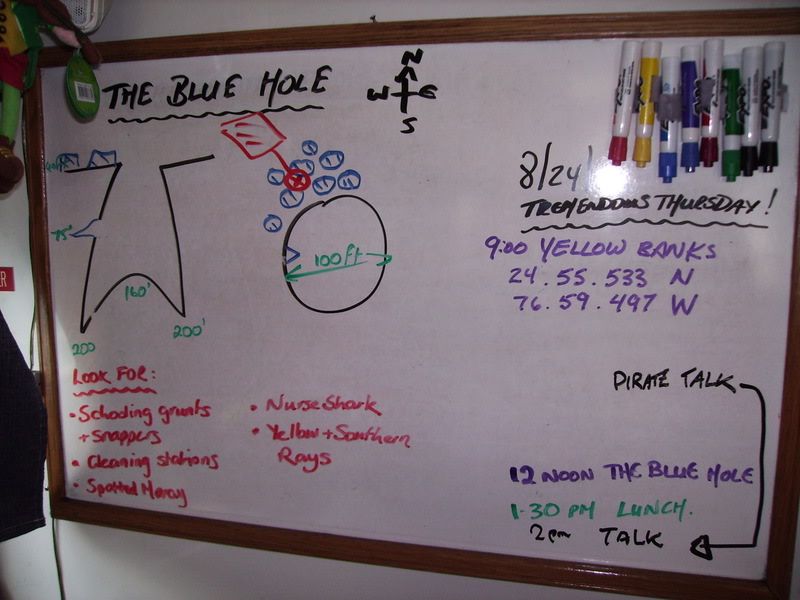 THE BLUE HOLE
N
W E
S
75'
160'
200
200'
100ft
8/24/
TREMENDOUS THURSDAY!
9:00 YELLOW BANKS
24.55.533 N
76.59.497 W
PIRATE TALK
12 NOON THE BLUE HOLE
1.30 PM LUNCH.
2pm TALK
LOOK FOR:
• Schooling grunts
+ Snappers
• Cleaning stations
• Spotted Moray
• Nurse Shark
• Yellow + Southern
Rays